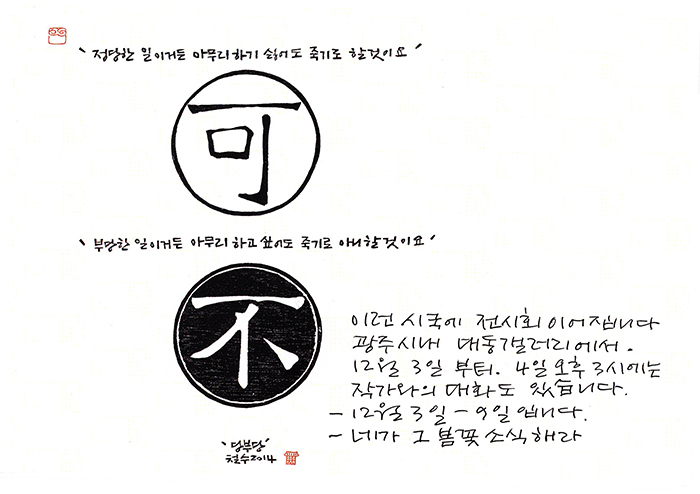 "정당한 일이거든 아무리 하기 싫어도 죽기로 할 것이요"
可
"부당한 일이거든 아무리 하고 싶어도 죽기로 아니할 것이요"
不
이런 시국에 전시회 이어집니다
광주 시내 대동갤러리에서.
12월 3일 부터. 4일 오후 3시에는
작가와의 대화도 있습니다.
- 12월 3일 - 9일 입니다.
- 네가 그 봄꽃 소식해라
"당부당"
철수 2014